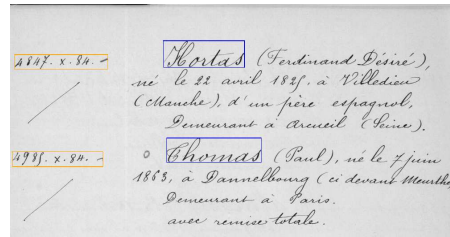 4847. x. 84. - Hortas (Ferdinand Désiré),
né le 22 avril 1825. à Villedieu
(Manche), d'un père espagnol,
Demeurant à Arcueil (Seine).
4985. x. 84. - Thomas (Paul), né le 7 juin
1863, à Dannelbourg (ci devant Meurthe)
Demeurant à Paris.
avec remise totale.